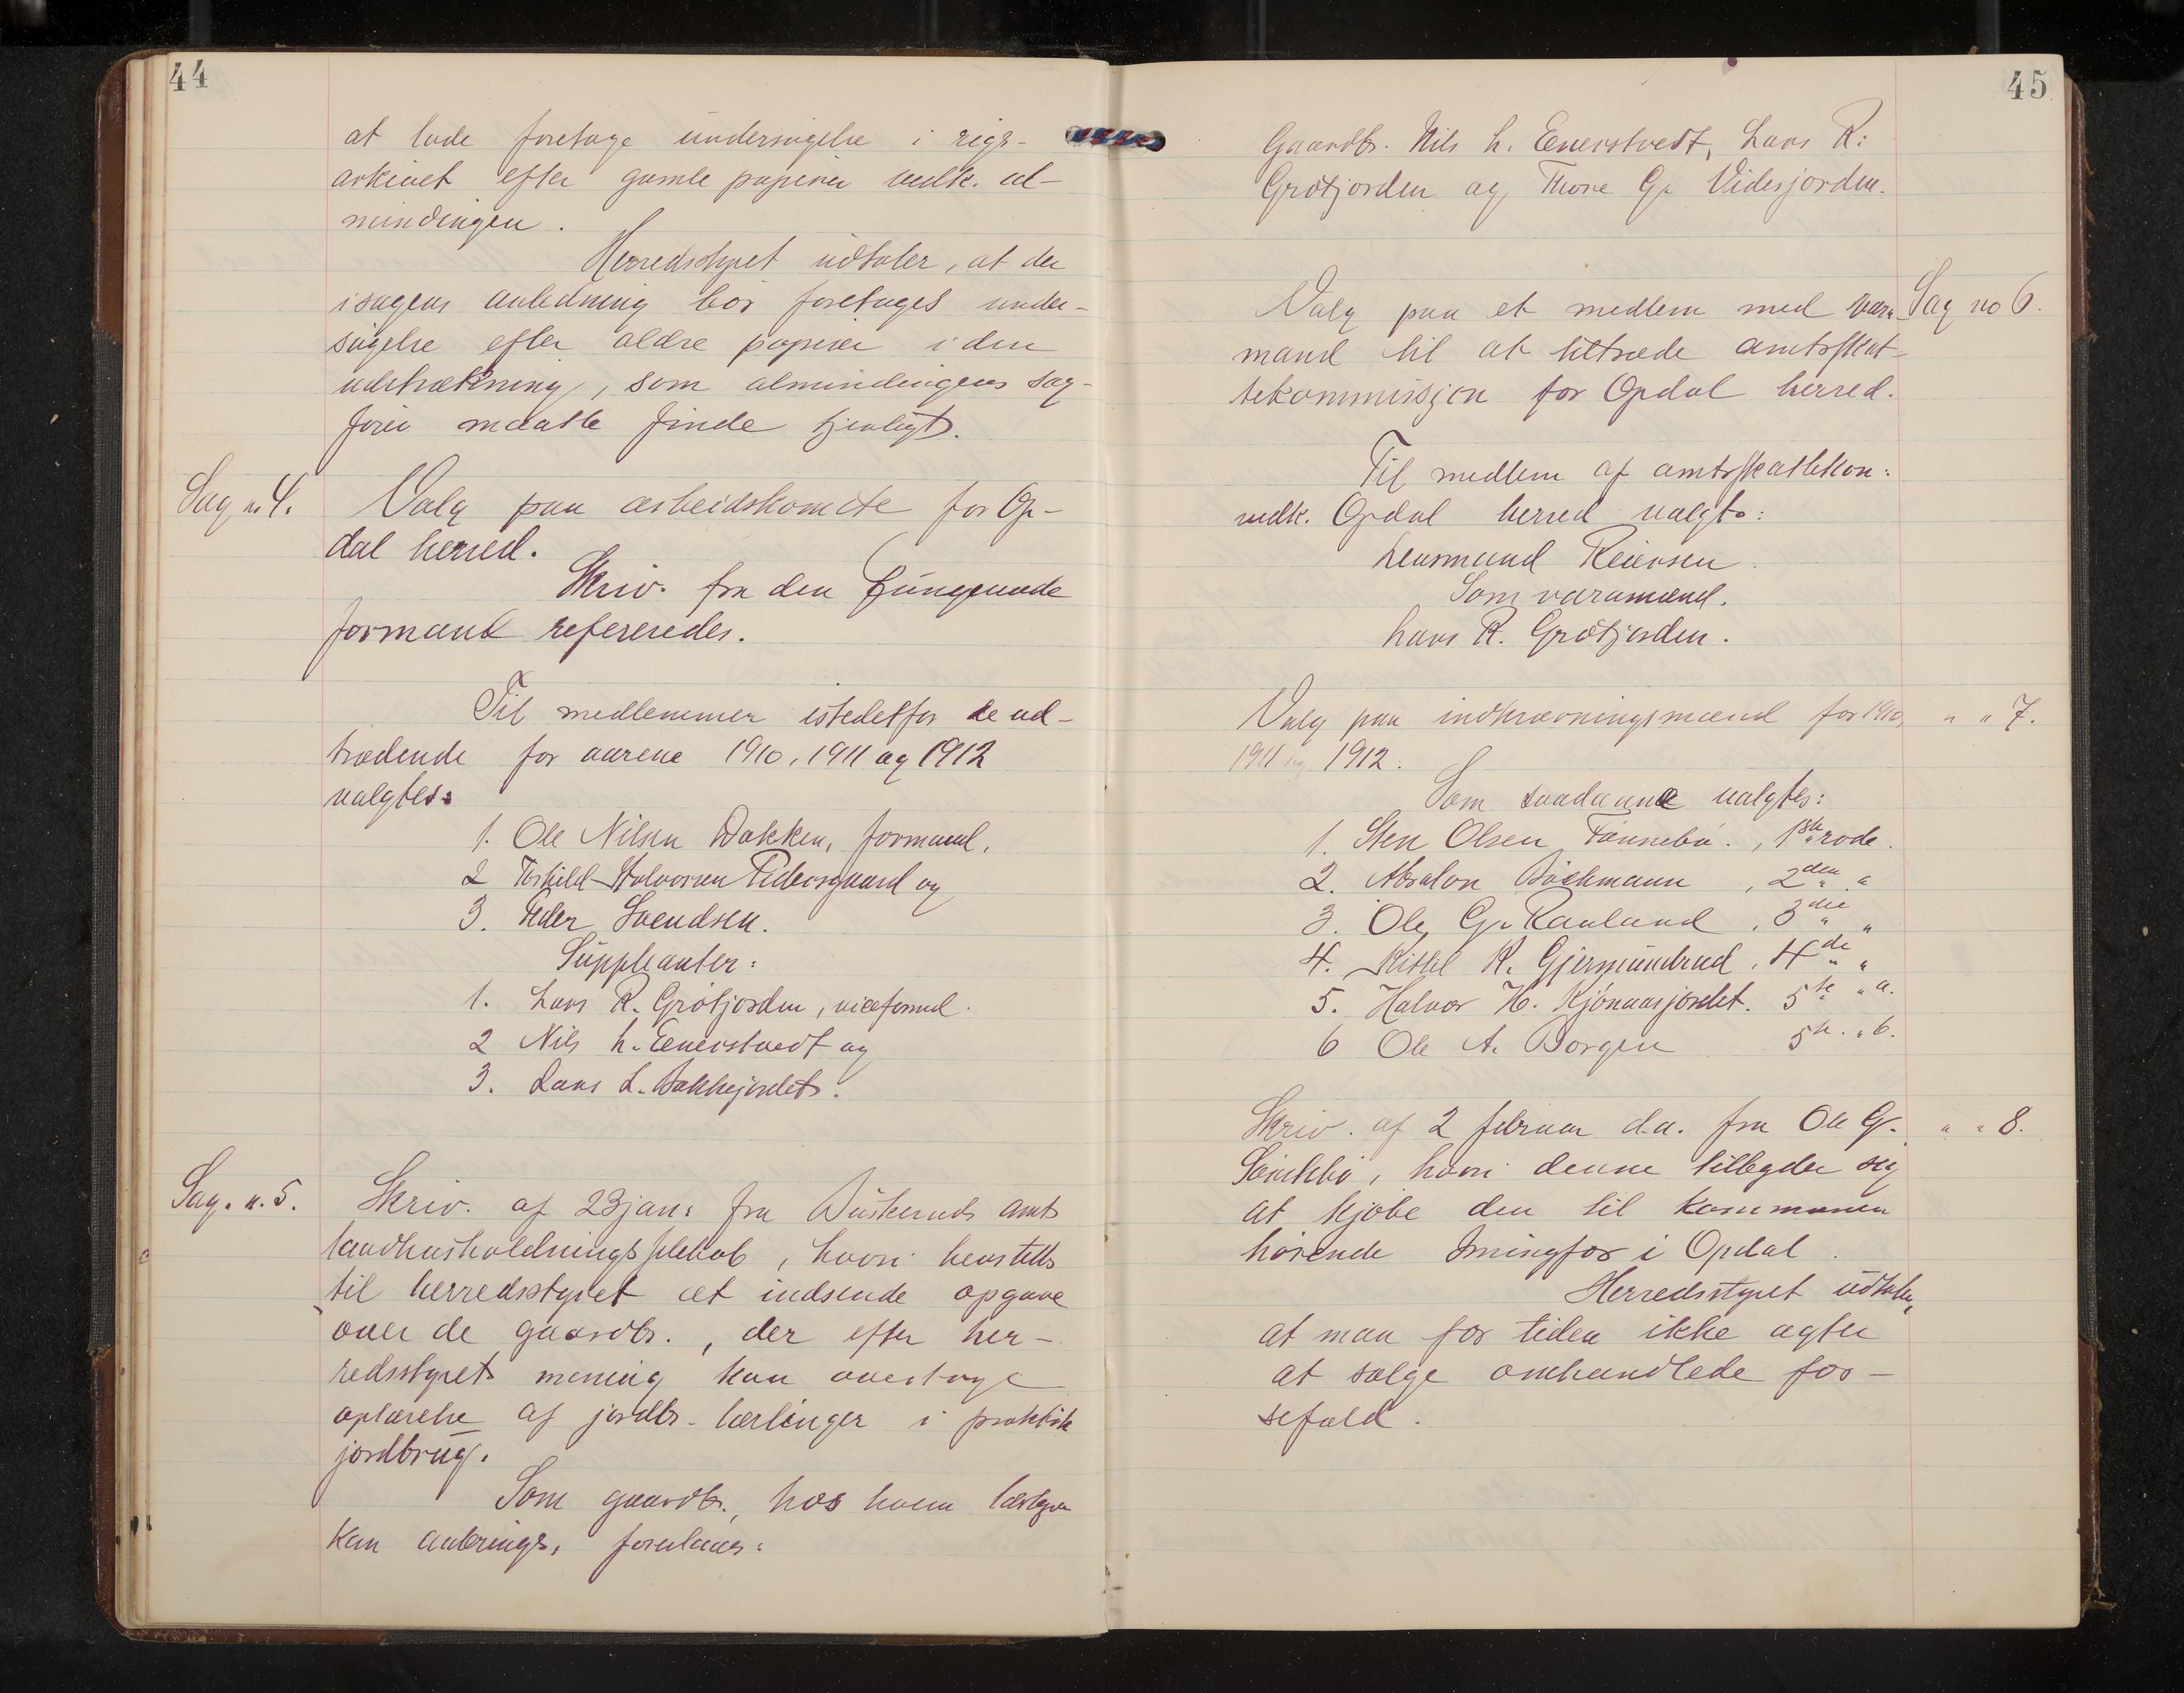 44
at lade foretage undersøgelse i rigs-
arkivet efter gamle papirer vedk. al-
mindingen.
Herredstyret udtaler, at der
i sagens anledning bør foretages under-
søgelse efter ældre papirer i den
udstrækning, som almindingens sag-
fører maatte finde tjenligt.
Sag n. 4.
Valg paa arbeidskomite for Op-
dal herred.
Skriv. fra den fungerende
formand refereredes.
Til medlemmer istedetfor de ud-
trædende for aarene 1910, 1911 og 1912
valgtes:
1. Ole Nilsen Bakken, formand,
2 Torkild Halvorsen og
3. Peder Svendsen.
Suppleanter:
1. Lars R. Grøtjorden, viceformd.
2 Nils L. Enerstvedt og
3. Lars L. Bakkejordet.
Sag. n. 5.
Skriv. af 23 jan: fra Buskeruds amts
landhusholdningsselskab, hvori henstilles
til herredsstyret at indsende opgave
over de gaardbr., der efter her-
redsstyrets mening kan overtage
oplærelse af jordbr.-lærlinger i praktisk
jordbrug.
Som gaardbr., hos hvem lærlinger
kan anbringes, foreslaaes:
45
Gaardbr. Nils L. Enerstvedt, Lars R:
Grøtjorden og Thore G. Videsjorden.
Sag no 6.
Valg paa et medlem med vara-
mand til at tiltræde amtsskat-
tekommissjon for Opdal herred.
Til medlem af amtsskattekom:
vedk. Opdal herred valgtes:
Lensmand Reiersen.
Som varamand.
Lars R. Grøtjorden.
" " 7.
Valg paa indkrævningsmænd for 1910,
1911 og 1912.
Som saadanne valgtes:
1. Sten Olsen Tønnebø., 1ste rode.
2. Absalon Bøckmann, 2den " "
3. Ole G. Rauland, 3die " "
4. Kittil K. Gjermundrud, 4de " "
5. Halvor H. Kjønaasjordet. 5te " a.
6 Ole A. Borgen 5te. " b.
" " 8.
Skriv. af 2 februar d.a. fra Ole G.
hvori denne tilbyder sig
at kjøbe den til kommunen
hørende i Opdal.
Herredsstyret udtaler,
at man for tiden ikke agter
at sælge omhandlede fos-
sefald.